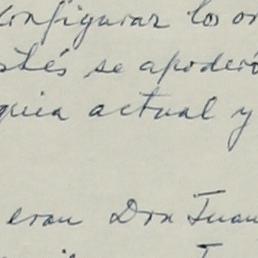 configurar los or
stés se apoderó
quia actual y
eran Don Juan